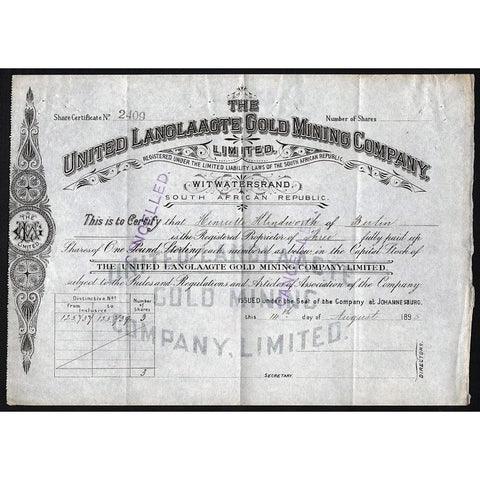 Share Certificate No 2409
Number of Shares
THE
UNITED LANGLAAGTE GOLD MINING COMPANY,
LIMITED.
REGISTERED UNDER THE LIMITED LIABILITY LAWS OF THE SOUTH AFRICAN REPUBLIC.
WITWATERSRAND,
SOUTH AFRICAN REPUBLIC.
CANCELLED.
This is to Certify that of Berlin
is the Registered Proprietor of Three fully paid up
Shares of One Pound Sterling each numbered as below in the Capital Stock of
THE UNITED LANGLAAGTE GOLD MINING COMPANY, LIMITED,
subject to the Rules and Regulations and Articles of Association of the Company
THE
LIMITED
GOLD MINING
COMPANY, LIMITED.
Distinctive Nos
from to
Inclusive
Number of Shares
3
3
ISSUED under the Seal of the Company at JOHANNESBURG,
this day of August 189
SECRETARY.
DIRECTORS.